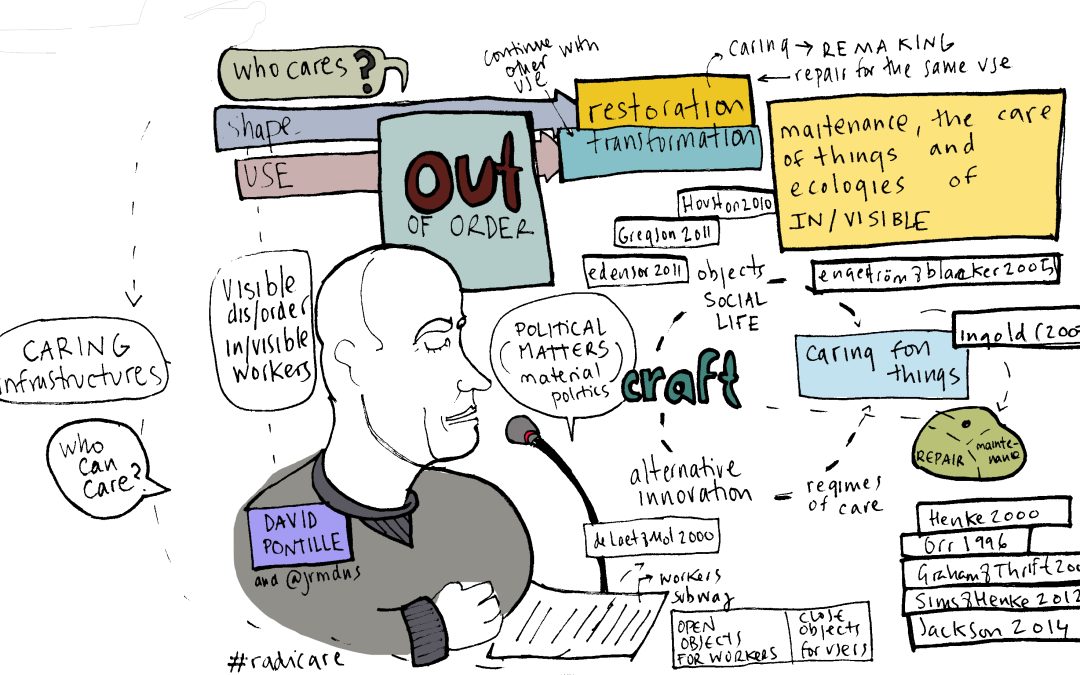 who cares?
continue with
other
use
caring → REMAKING
← repair for the same use
shape
USE
restoration
transformation
OUT
OF ORDER
maitenance, the care
of things and
ecologies of
IN/VISIBLE
Houston 2010
Gregson 2011
edensor 2011
objects
SOCIAL
LIFE
engeström & blacker 2005
Ingold (200
Visible
dis/order
in/visible
workers
CARING
infrastructures
POLITICAL
MATTERS
material
politics
craft
caring for
things
WHO
CAN
CARE?
REPAIR
mainte-
nance
alternative
innovation
regimes
of care
DAVID
PONTILLE
and @jrmdns
de Laet & Mol 2000
→ workers
subway
OPEN
OBJECTS
FOR WORKERS
CLOSE
objects
for users
Henke 2000
Orr 1996
Graham & Thrift 200
Sims & Henke 2012
Jackson 2014
#radicare